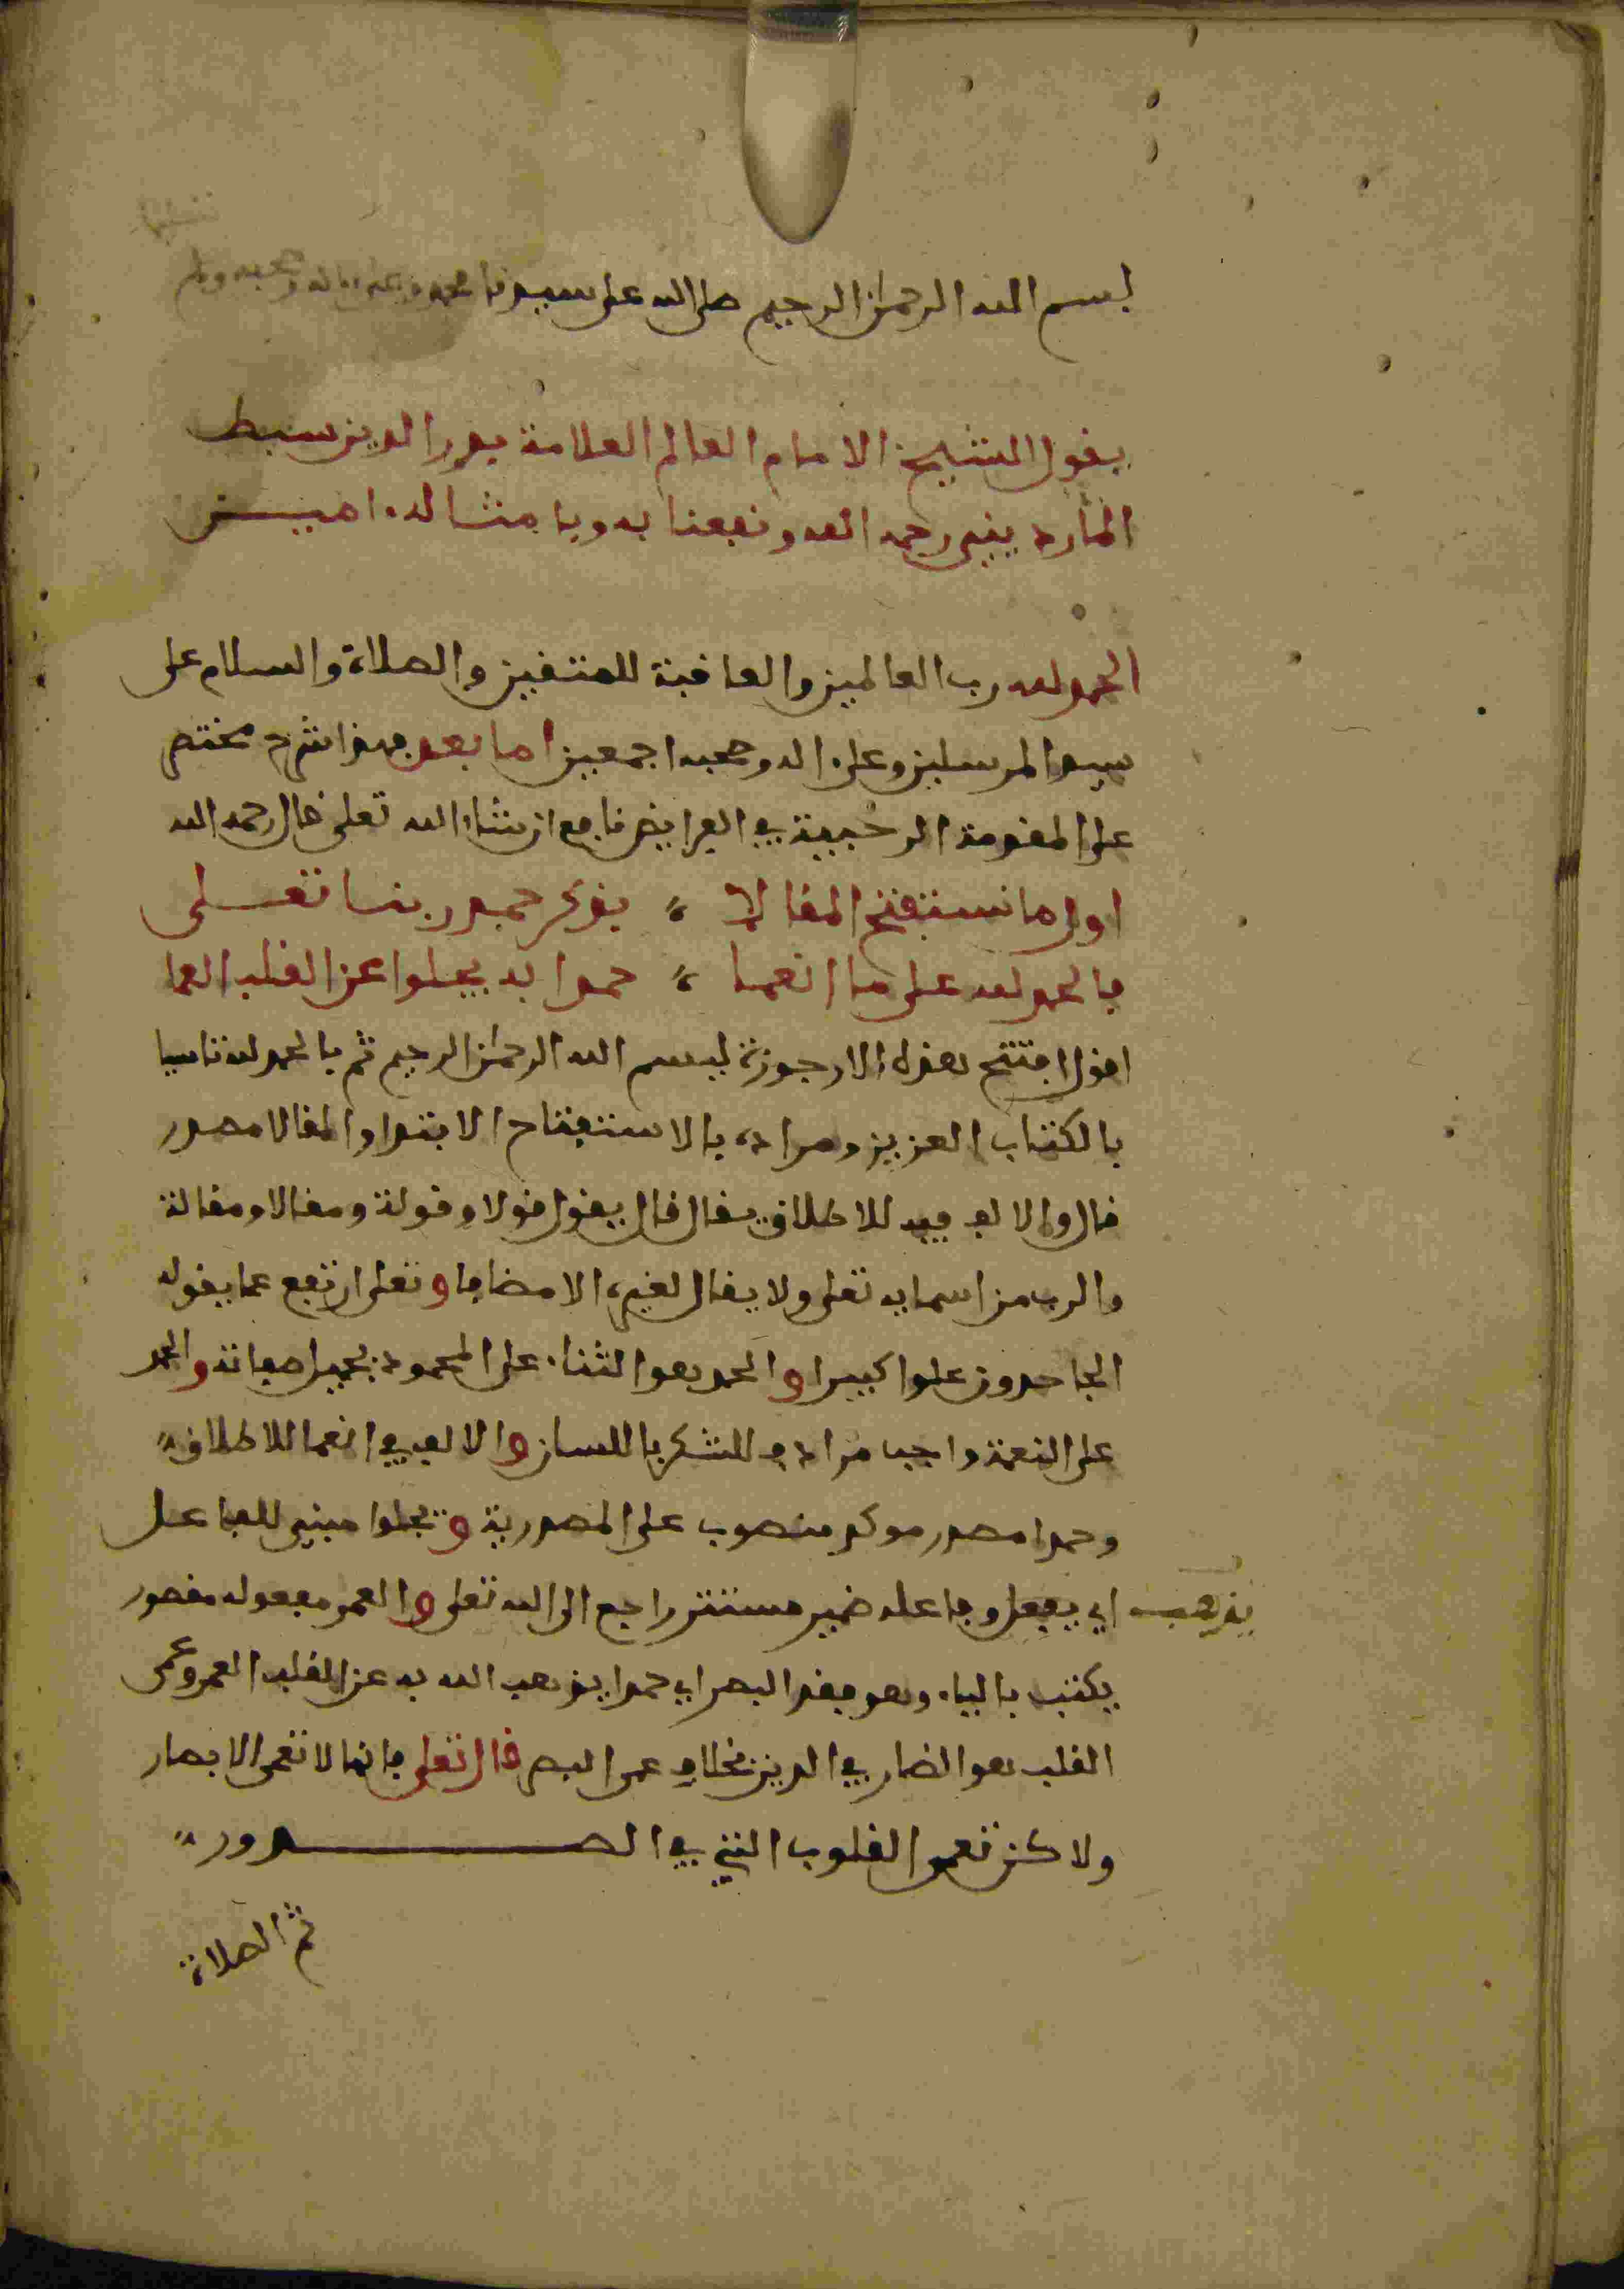 بسم الله الرحمن الرحيم صلى الله على سيدنا محمد وعلى ءاله وصحبه وسلم
يقول الشيخ الامام العالم العلامة بدر الدين سبط
المارديني رحمه الله ونفعنا به وبامثاله ءاميـــن
الحمد لله رب العالمين والعاقبة للمتقين والصلاة والسلام على
سيد المرسلين وعلى ءاله وصحبه اجمعين اما بعد فهذا شرح مختصر
على المقدمة الرحبية في الفرايض نافع ان شاء الله تعلى قال رحمه الله
اول ما نستفتح المقالا ؛ بذكر حمد ربنا تعـــلى
فالحمد لله على ما انعما ؛ حمدا به يجلوا عن القلب العما
اقول افتتح هذه الارجوزة ببسم الله الرحمن الرحيم ثم بالحمد لله تاسيا
بالكتاب العزيز ومراده بالاستفتاح الابتدا والمقالا مصدر
قال والالف فيه للاطلاق يقال قال يقول قولا وقولة ومقالا ومقالة
والرب من اسمايه تعلى ولا يقال لغيره الا مضافا وتعلى ارتفع عما يقوله
الجاحدون علوا كبيرا والحمد هو الثناء على المحمود بجميل صفاته والحمد
على النعمة واجب مرادف للشكر باللسان والالف في انعما للاطلاق
وحمدا مصدر موكد منصوب على المصدرية ويجلوا مبني للفاعـل
اي يفعل وفاعله ضمير مستتر راجع الى الله تعلى والعمى مفعوله مقصور
يذهب
يكتب بالياء وهو فقد البصر اي حمدا يذهب الله به عن القلب العمى وعمى
القلب هو الضار في الدين بخلاف عمى البصر قال تعلى فانها لا تعمى الابصار
ولاكن تعمى القلوب التي في الصــــــــدور
ثم الصلاة